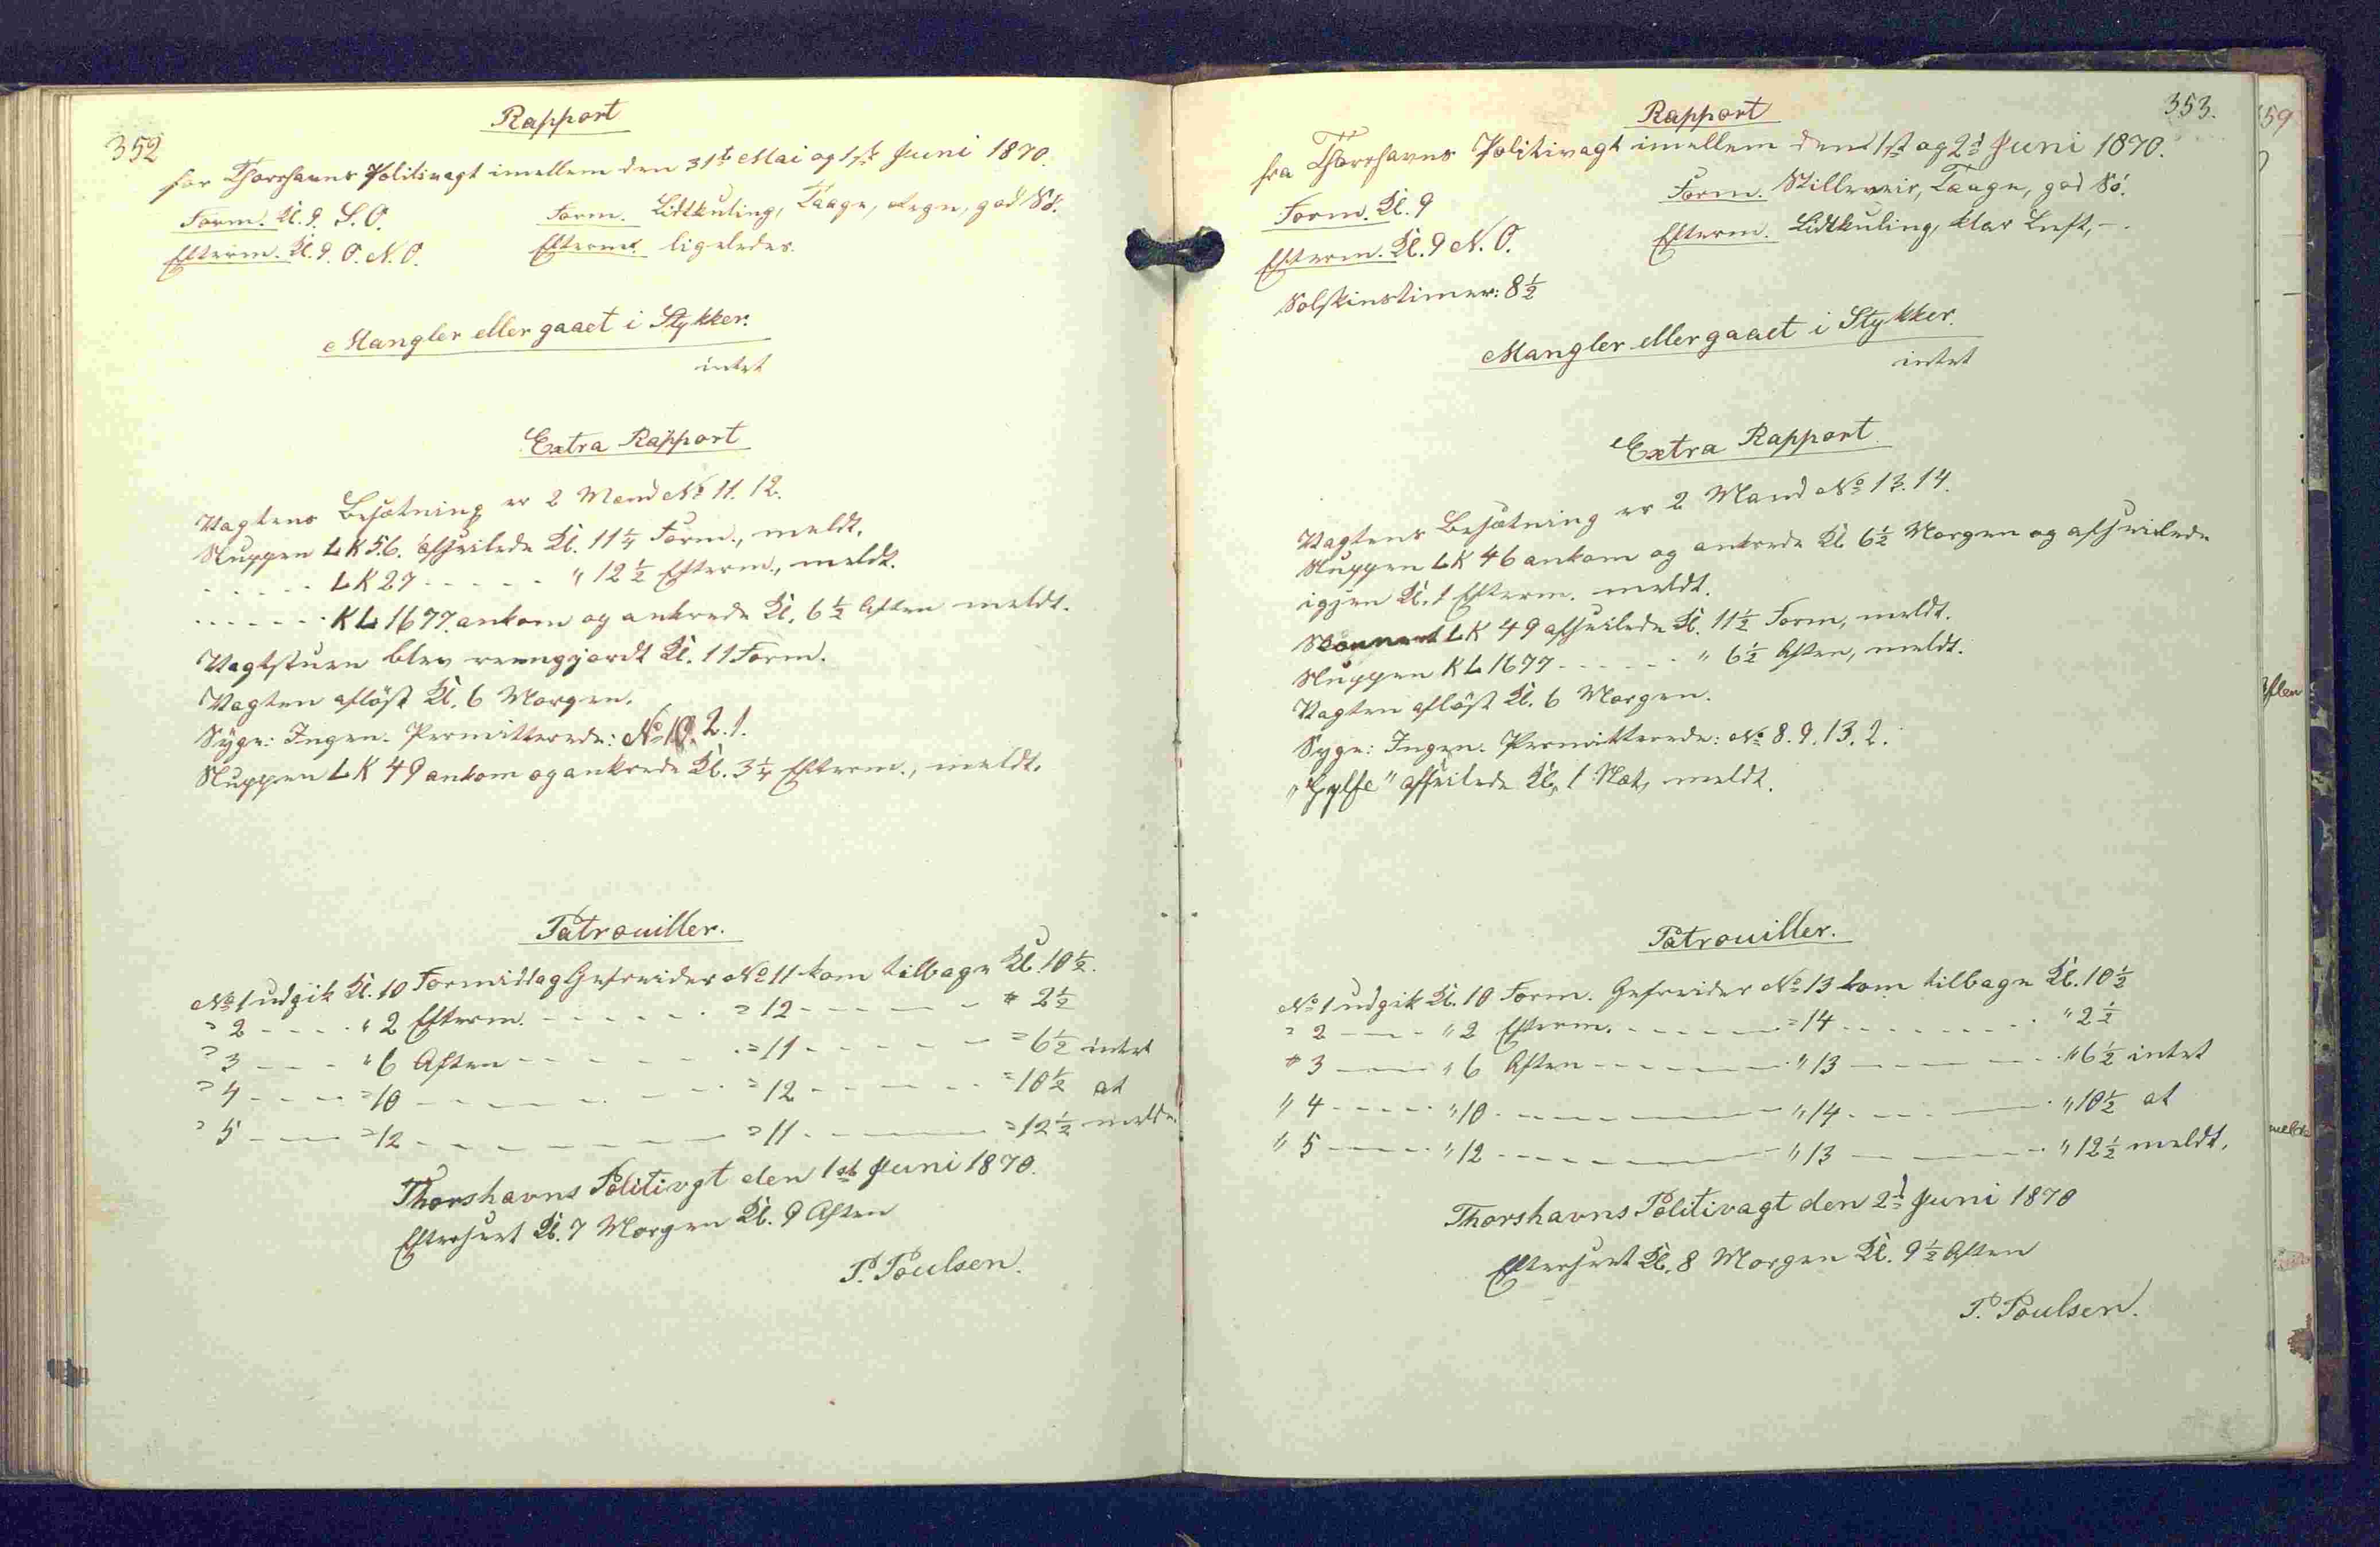 352
Rapport
for Thorshavns Politivagt imellem den 31te Mai og 1ste Juni 1870.
Form. Kl. 9. S. O. Form. Lidtkuling, Taage, Regn, god Sø.
Efterm. Kl. 9. O. N. O. Efterm. ligeledes.
Mangler eller gaaet i Stykker.
intet
Extra Rapport
Vagtens Besætning er 2 Mand No 11. 12.
Sluppen LK 56. afseilede Kl. 11 1/4 Form., meldt.
- - - - - LK 27 - - - - - " 12 1/2 Efterm., meldt.
- - - - - - KL 1677. ankom og ankrede Kl. 6 1/2 Aften meldt.
Vagtstuen blev reengjordt Kl. 11 Form.
Vagten afløst Kl. 6 Morgen.
Syge: Ingen. Permitterede: No 10. 2. 1.
Sluppen LK 49 ankom og ankrede Kl. 3 1/4 Efterm., meldt.
Patrouiller.
No 1 udgik Kl. 10 Formiddag Gefreider No 11 kom tilbage Kl. 10 1/2.
" 2 - - - - " 2 Efterm. - - - - - - " 12 - - - - - " 2 1/2
" 3 - - - - " 6 Aften - - - - - - " 11 - - - - - " 6 1/2 intet
" 4 - - - - " 10 - - - - - - " 12 - - - - - " 10 1/2 at
" 5 - - - - " 12 - - - - - - " 11 - - - - - " 12 1/2 melde.
Thorshavns Politivgt den 1ste Juni 1870.
Efterseet Kl. 7 Morgen Kl. 9 Aften
P. Poulsen.
353.
Rapport
fra Thorshavns Politivagt imellem den 1ste og 2den Juni 1870.
Form. Kl. 9 Form. Stilleveir, Taage, god Sø.
Efterm. Kl. 9 N. O. Efterm. Lidtkuling, klar Luft, -.
Solskinstimer: 8 1/2
Mangler eller gaaet i Stykker.
intet
Extra Rapport
Vagtens Besætning er 2 Mand No 13. 14.
Sluppen LK 46 ankom og ankrede Kl. 6 1/2 Morgen og afseilede
igjen Kl. 1 Efterm. meldt.
Skonnert LK 49 afseilede Kl. 11 1/2 Form, meldt.
Sluppen KL 1677 - - - - - - " 6 1/2 Aften, meldt.
Vagten afløst Kl. 6 Morgen.
Syge: Ingen. Permitterede: No 8. 9. 13. 2.
"Gylfe" afseilede Kl. 1 Nat, meldt.
Patrouiller.
No 1 udgik Kl. 10 Form. Gefreider No 13 kom tilbage Kl. 10 1/2
" 2 - - - - " 2 Efterm. - - - - - - " 14 - - - - - " 2 1/2
" 3 - - - - " 6 Aften - - - - - - " 13 - - - - - " 6 1/2 intet
" 4 - - - - " 10 - - - - - - " 14 - - - - - " 10 1/2 at
" 5 - - - - " 12 - - - - - - " 13 - - - - - " 12 1/2 meldt.
Thorshavns Politivagt den 2den Juni 1870
Efterseet Kl. 8 Morgen Kl. 9 1/2 Aften
P. Poulsen.